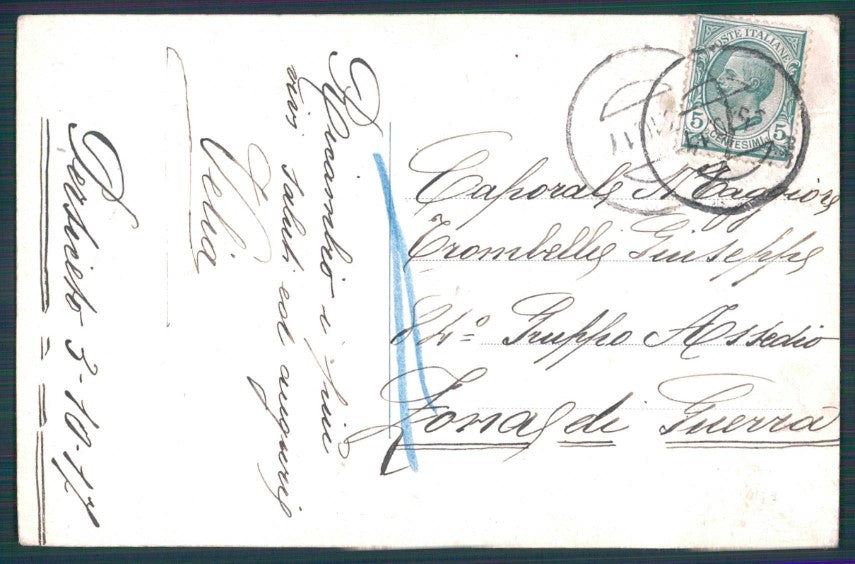 Ricambio i più
vivi saluti ed auguri
Velia
Persiceto 3-10-17
POSTE ITALIANE
5 5
CENTESIMI
Caporale Maggiore
Trombelli Giuseppe
82º Gruppo Assedio
Zona di Guerra